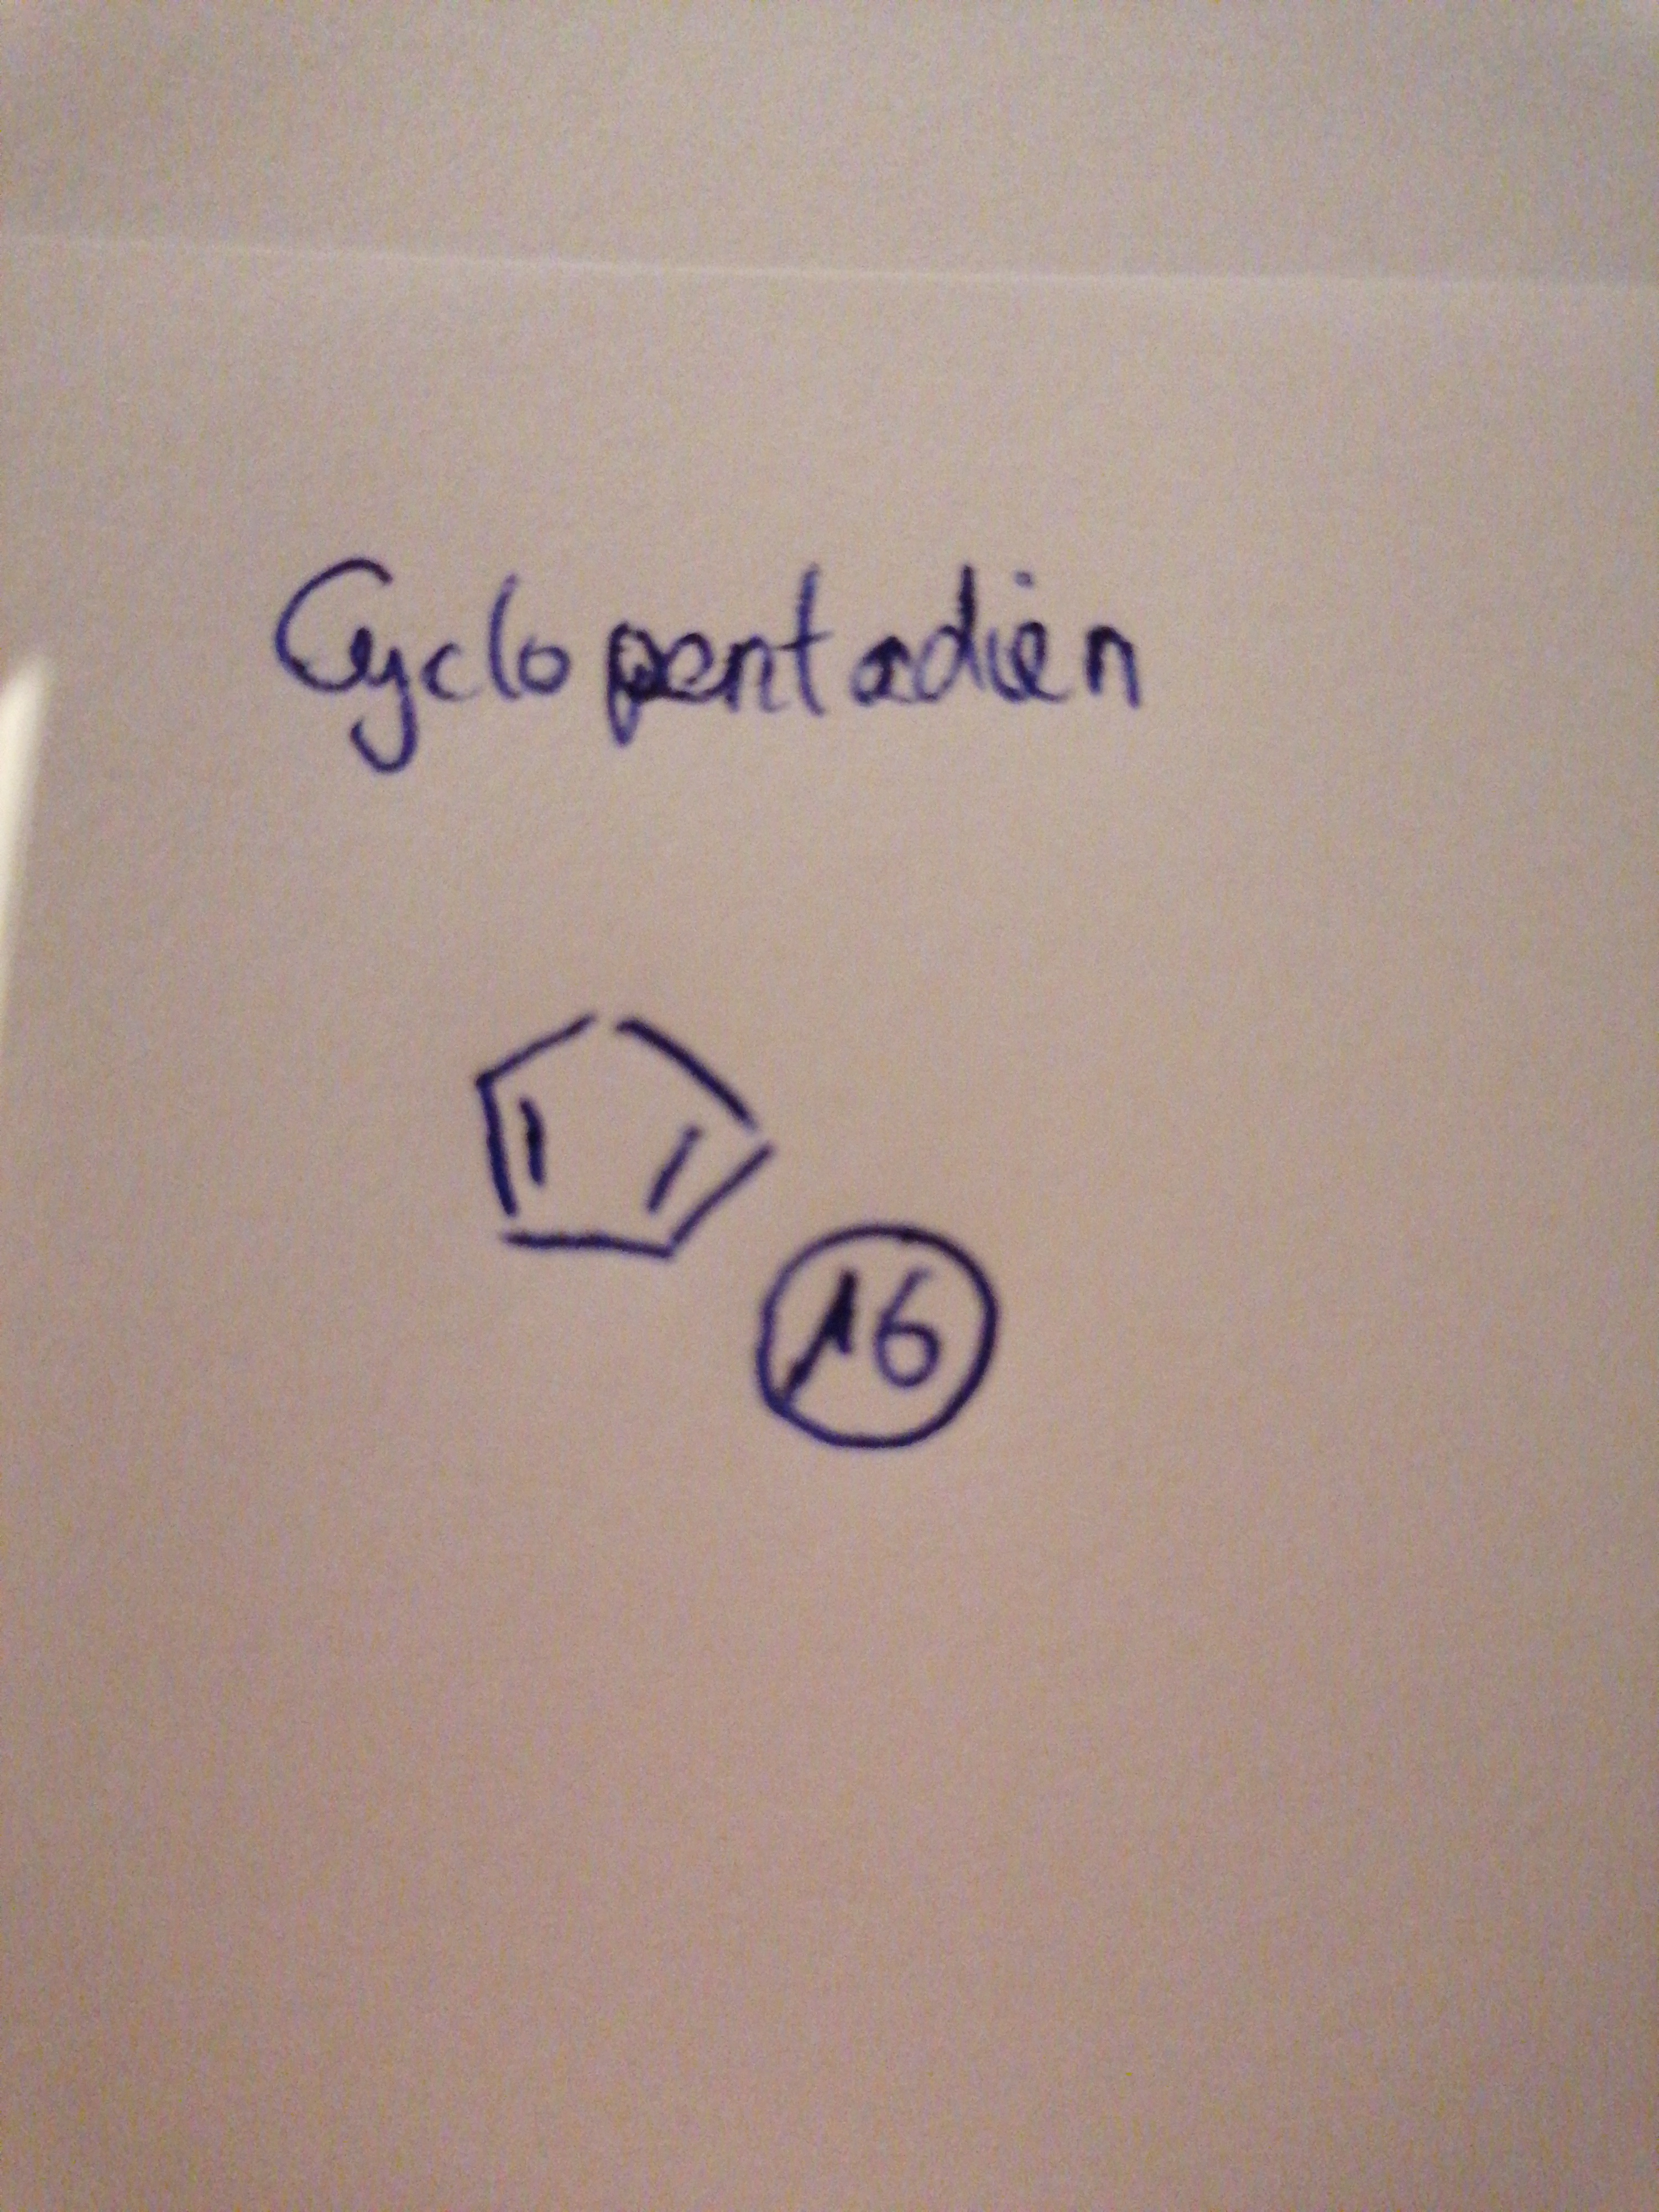 Cyclopentadien
16